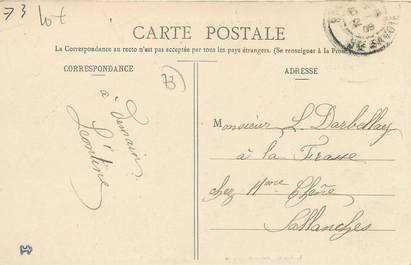 73 lot
CARTE POSTALE
La Correspondance au recto n'est pas acceptée par tous les pays étrangers. (Se renseigner à la Poste)
CORRESPONDANCE
73
ADRESSE
à Demain
Léontine
Monsieur L. Darbellay
à la Frasse
chez Mme
Sallanches